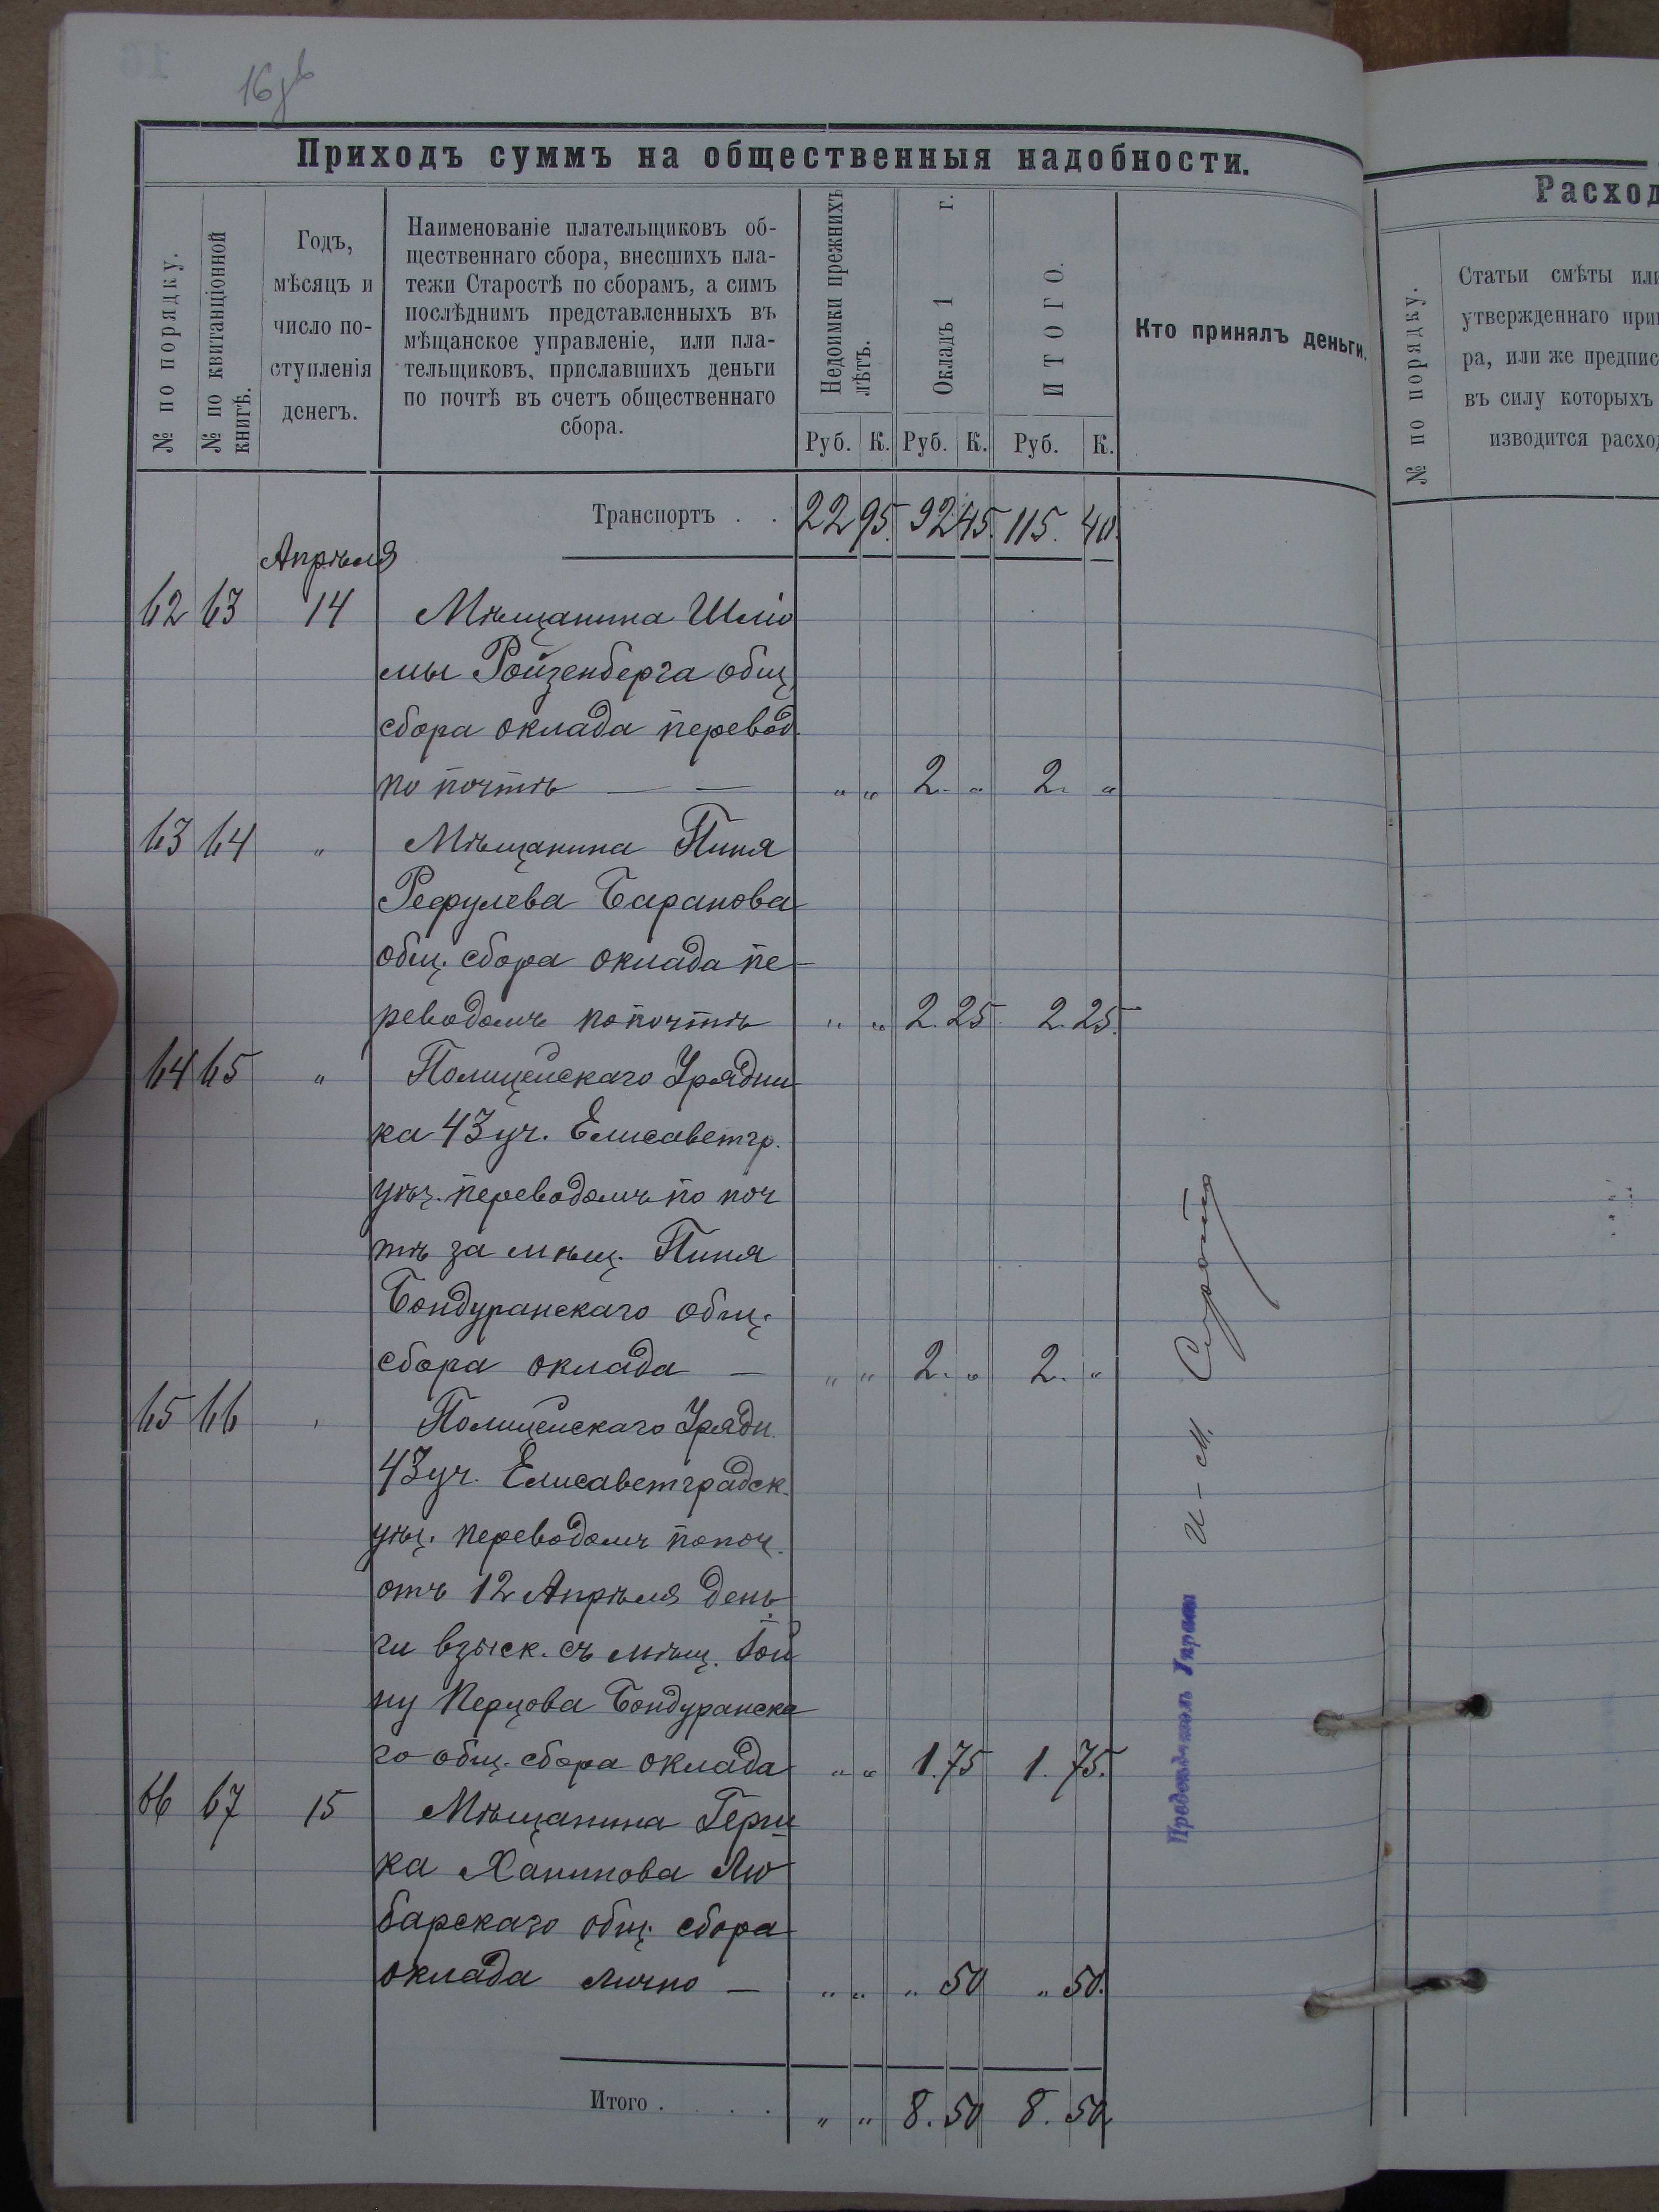 16 об
Приходъ суммъ на общественныя надобности.
№ по порядку.
№ по квитанціонной
книгѣ.
Годъ,
мѣсяцъ и
число по-
ступленія
денегъ.
Наименованіе плательщиковъ об-
щественнаго сбора, внесшихъ пла-
тежи Старостѣ по сборамъ, а симъ
послѣднимъ представленныхъ въ
мѣщанское управленіе, или пла-
тельщиковъ, приславшихъ деньги
по почтѣ въ счетъ общественнаго
сбора.
Недоимки прежнихъ
лѣтъ.
Окладъ 1 г.
ИТОГО.
Кто принялъ деньги.
Руб. К. Руб. К. Руб. К.
Транспортъ . . 22 95. 92 45. 115. 40.
Апрѣля
62 63 14 Мѣщанина Шліо
мы Ройзенберга общ.
сбора оклада перевод.
по почтѣ — — „ „ 2. „ 2. „
63 64 „ Мѣщанина Пиня
Рефулева Баранова
общ. сбора оклада пе-
реводомъ по почтѣ „ „ 2. 25. 2. 25.
64 65 „ Полицейскаго Урядни-
ка 43 уч. Елисаветгр.
уѣз. переводомъ по поч
тѣ за мѣщ. Пиня
Бондуранскаго общ.
сбора оклада — „ „ 2. „ 2. „
65 66 „ Полицейскаго Урядн.
43 уч. Елисаветградск.
уѣз. переводомъ по поч.
отъ 12 Апрѣля день
ги взыск. съ мѣщ.
Перцова Бондуранска
го общ. сбора оклада „ „ 1. 75 1. 75.
66 67 15 Мѣщанина Герш
ка Ханинова Лю
барскаго общ. сбора
оклада лично — „ „ „ 50 „ 50.
Итого . . . . „ „ 8. 50 8. 50.
Предсѣдатель Управы
И-М. Сирота
Расход
№ по порядку.
Статьи смѣты или
утвержденнаго при
ра, или же предпис
въ силу которыхъ
изводится расхо